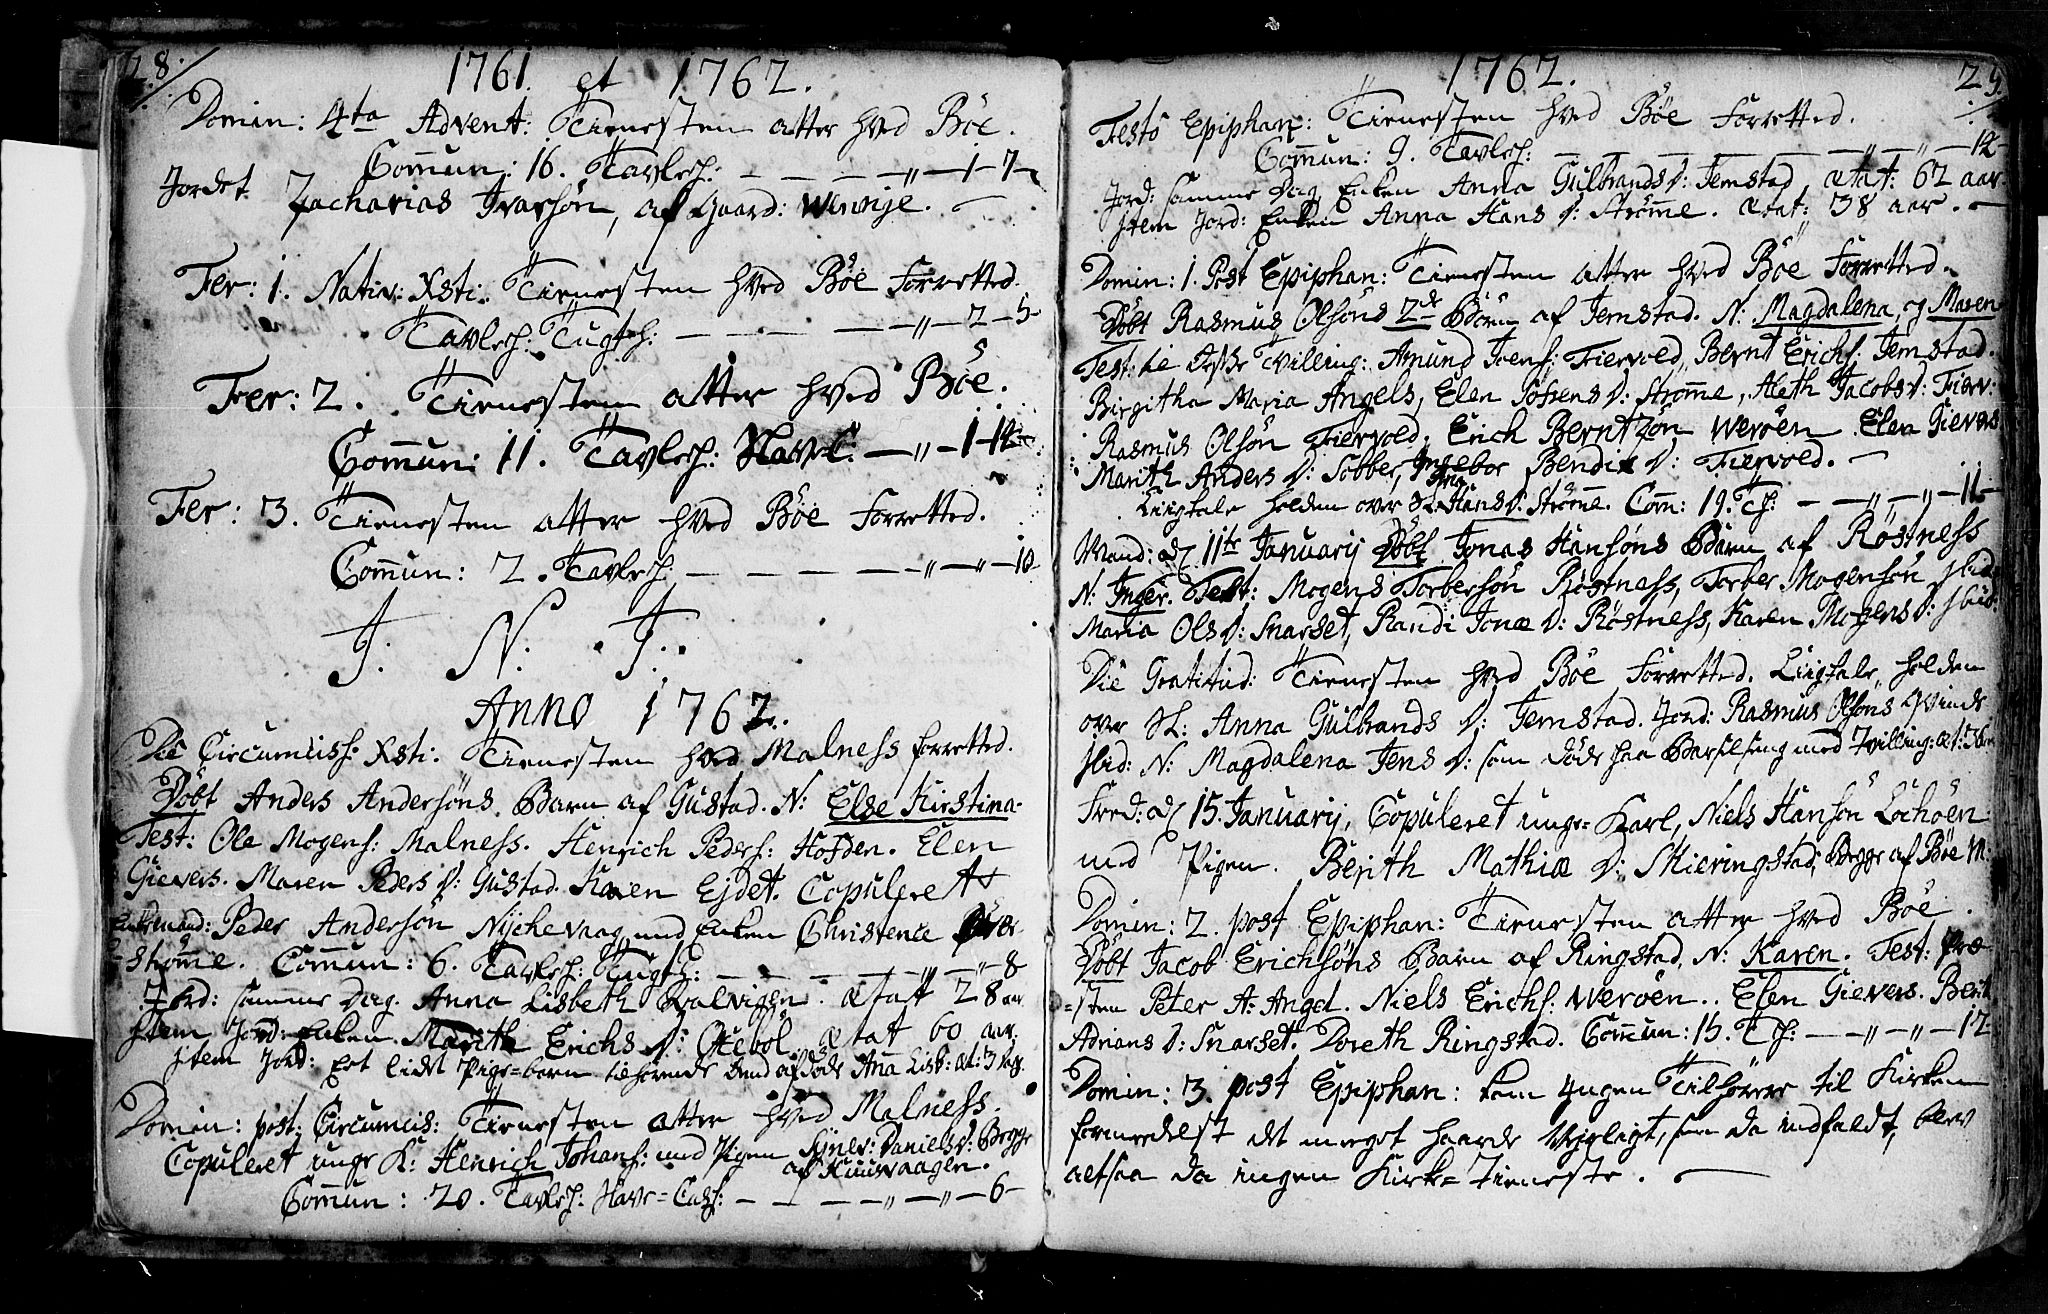 28.
1761. et 1762.
Domin: 4ta Advent: Tienesten atter hved Böe.
Commun: 16. Tavlch: — — — — „ — 1 — 7 —
Jordet Zacharias Ivarsön, af Gaard: Winnje. —
Fer: 1. Nativ: Xsti: Tienesten hved Böe Forretted.
Tavlch: Tugth: — — — — „ — 2 — 5 —
Fer: 2. Tienesten atter hved Böe.
Commun: 11. Tavlch: — „ — 1 — 12
Fer: 3. Tienesten atter hved Böe Forretted.
Commun: 2. Tavlch: — — — — — „ — „ — 10
J: N: J:
Anno 1762.
Die Circumciss: Xsti: Tienesten hved Malness forretted.
Döbt Anders Andersöns Barn af Gustad. N: Else Kirstina.
Test: Ole Mogens: Malness. Henrich Peders: Hofden. Elen
Gievers. Maren Peders D: Gustad. Karen Ejdet. Copuleret
Enkemand: Peder Andersön Nykevaag med Enken Christence
Strömme. Commun: 6. Tavlch: Tugth: — — — — „ — „ — 8
Jord: samme Dag. Anna Lisbeth ætat 28 aar
Item Jord: Enken Marith Erichs D: ætat 60 aar.
Item Jord: Eet lidet Pige=barn tilhörende bemd afdöde Ana Lisb: æt: 3 dag.
Domin: post Circumcis: Tienesten atter hved Malness.
Copuleret unge K: Henrich Johans: med Pigen Daniels D: Begge
af Kuusvaagen.
Commun: 20. Tavlch: Have=Cass: — — — — „ — „ — 6 —
1762.
29.
Festo Epiphan: Tienesten hved Böe Forretted.
Commun: 9. Tavlch: — — — — — „ — „ — 12 —
Jord: samme Dag Enken Anna Gulbrands D: Jemstad, ætat: 62 aar.
Item Jord: Enken Anna Hans D: Strömme. ætat: 38 aar. —
Domin: 1. Post Epiphan: Tienesten atter hved Böe Forretted.
Döbt Rasmus Olsöns 2de Börn af Jemstad. N: Magdalena, og Maren
Test: til Tvilling: Amund Joens: Fiervold, Bernt Erichs: Jemstad.
Birgitha Maria Angels, Elen D: Strömme, Aleth Jacobs D: Fierv:
Rasmus Olsön Fiervold, Erich Berntzön Weröen. Elen Gievers
Marith Anders D: Sobber, Ingebor Bendix D: Fiervold. —
Liigtale holden over Sl. Anna Hans D: Strömme. Com: 19. Th: — — „ — „ — 11 —
Mand: d. 11te Januarij Döbt Jonas Hansöns Barn af Röstness
N: Inger. Test: Mogens Torbersön Röstness, Torber Mogensön Ibid.
Maria Ols D: Snarset, Randi Jonæ D: Röstness, Karen Mogens D: Ibid:
Die Gratitud: Tienesten hved Böe Forretted. Liigtale, holden
over Sl: Anna Gulbrands D: Jemstad. Jord: Rasmus Olsöns Qvinde
Ibid: N: Magdalena Jens D: som döde paa Barselseng med Tvilling: æt: 36
Fred: d. 15. Januarij, Copuleret unge=Karl, Niels Hansön Lochöen
med Pigen. Berith Mathiæ D: Skieringstad, Begge af Böe M:
Domin: 2. post Epiphan: Tienesten atter hved Böe.
Döbt Jacob Erichsöns Barn af Ringstad, N: Karen. Test: Præ-
=sten Peter A: Angel. Niels Erichs: Weröen.. Elen Gievers. Berit
Adrians D: Snarset. Doreth Ringstad. Commun: 15. Th: — — „ — „ — 12
Domin: 3. post Epiphan: kom Ingen Tilhörere til Kirken
formedelst det meeget haarde Vejrligt, som da indfaldt, blev
altsaa da ingen Kirke=Tieneste. —